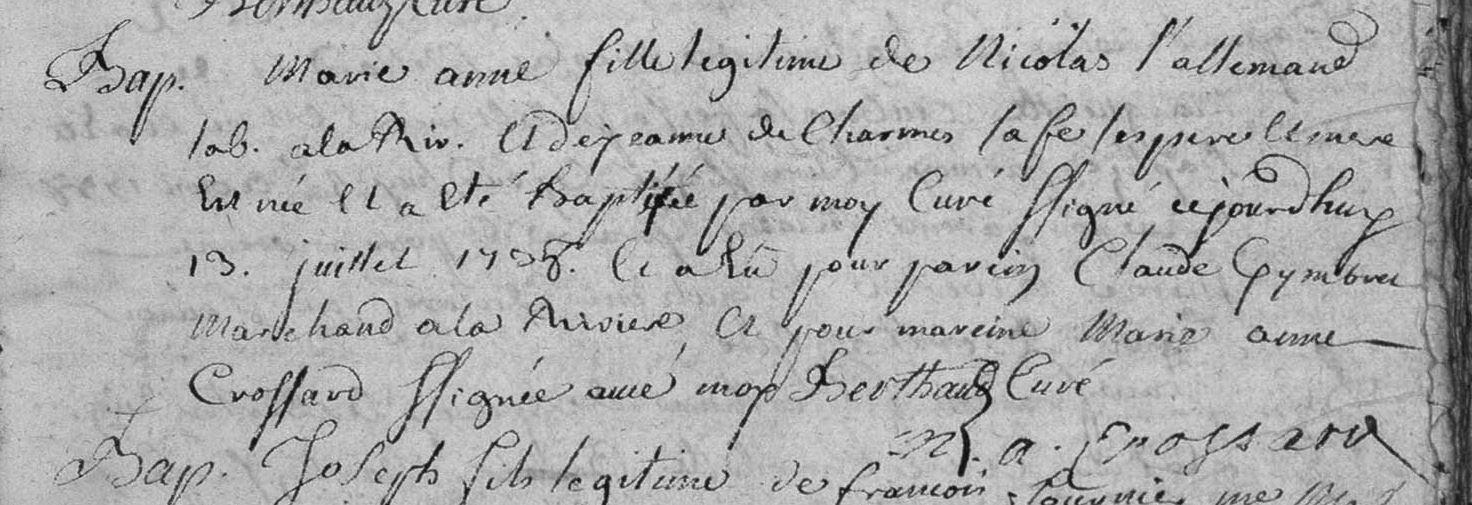 Berthauz Curé
Bap. Marie anne fille legitime de Nicolas l'allemand
lab. a la Riv. Et de jeanne de Charmes sa fe ses pere Et mere
Est née Et a Eté Baptisée par moy Curé ssigné cejourdhuy
13. juillet 1738. Et a Eu pour parein Claude
Marchand a la Riviere, Et pour mareine Marie anne
Crossard ssignée avec moy Berthauz Curé
m. a. Crossard
Bap. Joseph fils legitime de francois